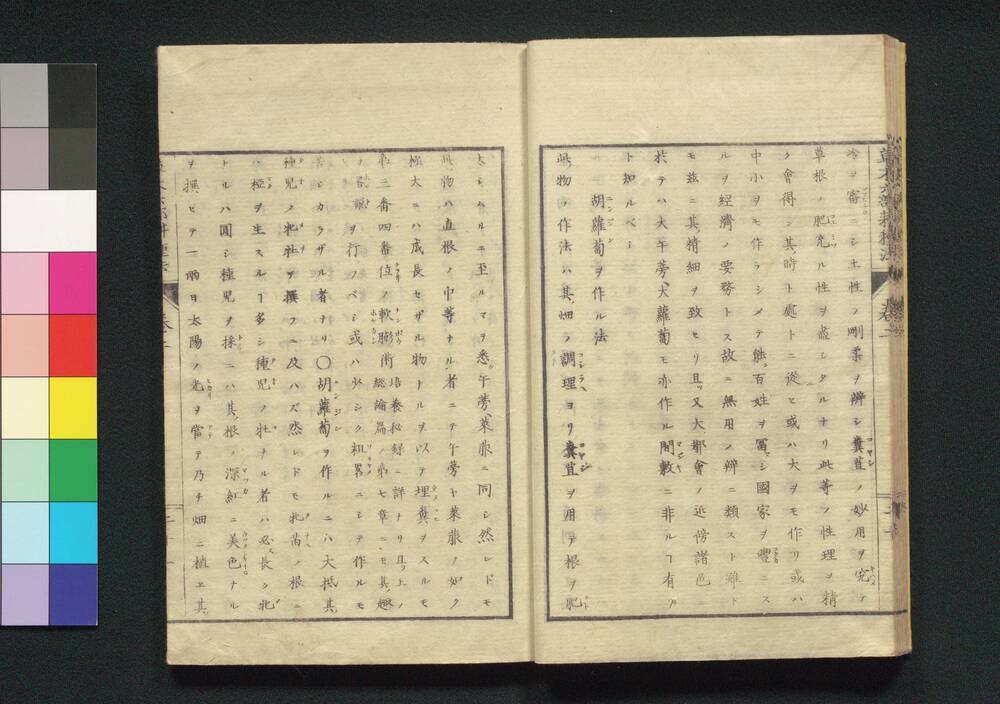 冷ヲ審ニシ土性ノ剛柔ヲ辨シ糞苴ノ妙用ヲ究テ
草根ノ肥充ル性ヲ盡シタルナリ此等ノ性理ヲ精
ク會得シ其時ト處トニ從ヒ或ハ大ヲモ作リ或ハ
中小ヲモ作ラシメテ能百姓ヲ冨シ國家ヲ豐ニス
ルヲ經濟ノ要務トス故ニ無用ノ辨ニ類スト雖ト
モ茲ニ其精細ヲ致セリ且又大都會ノ近傍諸邑ニ
於テハ大午蒡大蘿蔔モ亦作ル間敷ニ非ルヿ有ヿ
ト知ルベシ
胡蘿蔔ヲ作ル法
此物ノ作法ハ其畑ヲ調理ヨリ糞苴ヲ用テ根ヲ肥
太シハルニ至ルマヲ悉午蒡萊菔ニ同シ然レドモ
此物ハ直根ノ中等ナル者ニテ午蒡ヤ萊菔ノ如ク
極太ニハ成長セザル物トルヲ以テ埋糞ヲスルモ
第三番四番位ノ軟膨術 培養秘録ニ詳ナリ且上ノ
總論篇ノ第七章ニモ其趣
ヲ行ノベシ或ハ少シク粗畧ニシテ作ルモ
シカラザル者ナリ〇胡蘿蔔ヲ作ルニハ大抵其
種兒ノ牝牡ヲ撰フニ及ハズ然レドモ牝苗ノ根ニ
ハ極ヲ生スルヿ多シ種兒ノ牡ナル者ハ必長ク牝
トルハ圓シ種兒ヲ採ニハ其根ノ深紅ニ美色ナル
ヲ撰ヒテ一兩日太陽ノ光ヲ當テ乃チ畑ニ植ヱ其